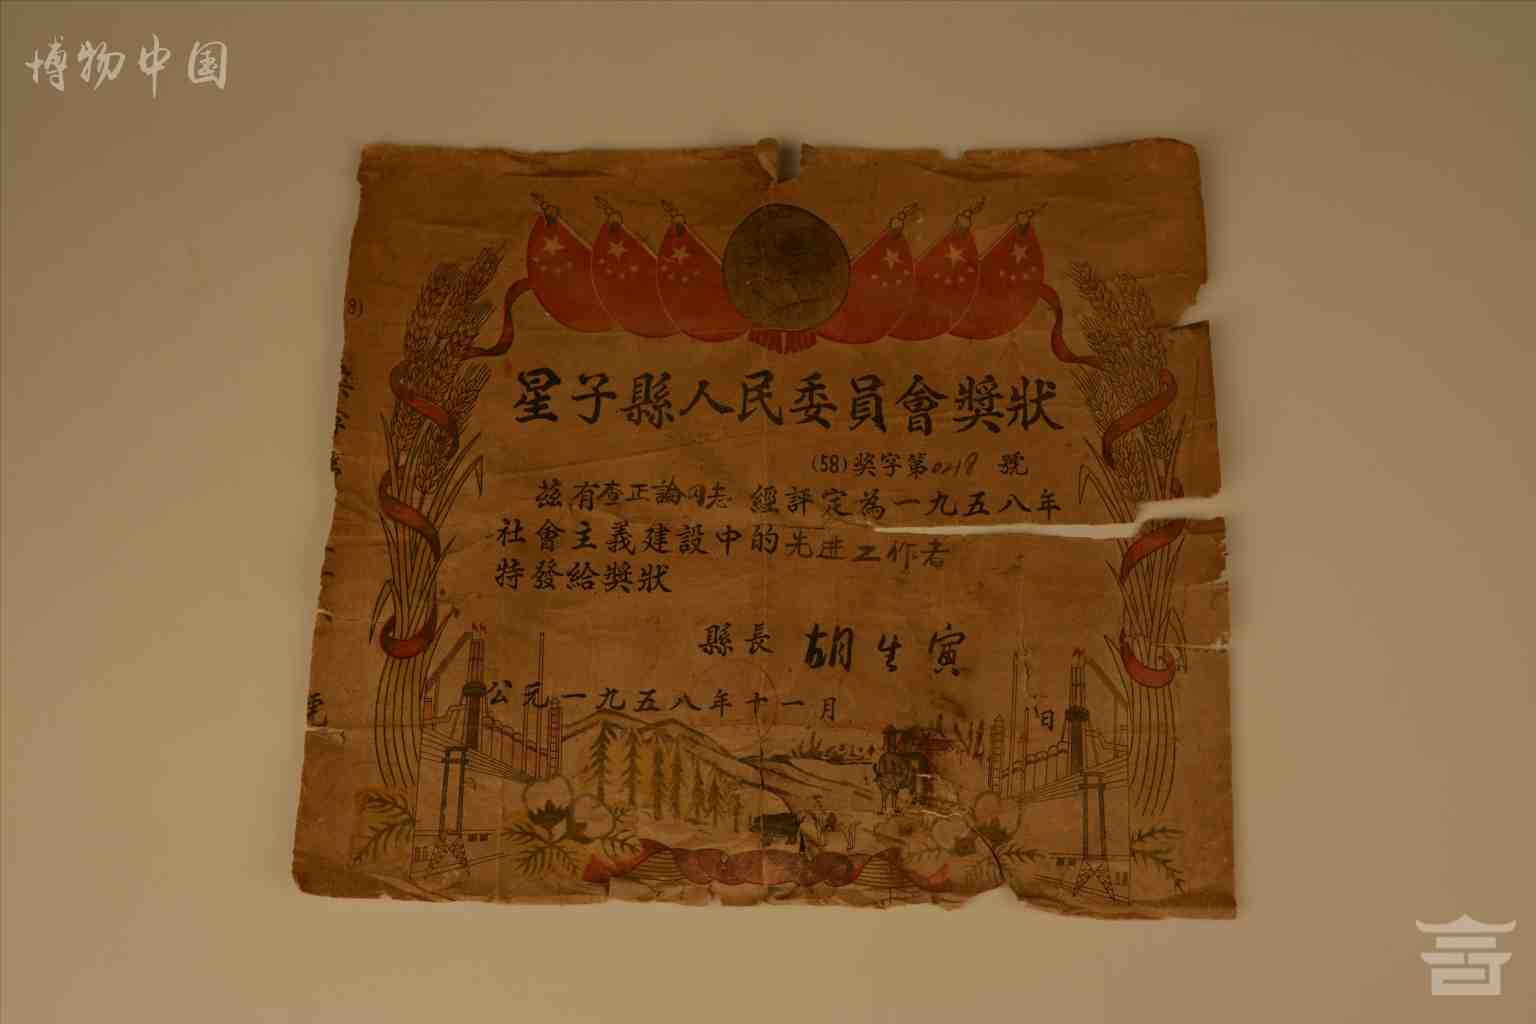 博物中国
星子縣人民委員會獎狀
(58)奖字第0218 號
茲有查正論同志 經評定為一九五八年
社會主義建設中的先进工作者
特發給獎狀
縣長 胡生寅
公元一九五八年十一月 日